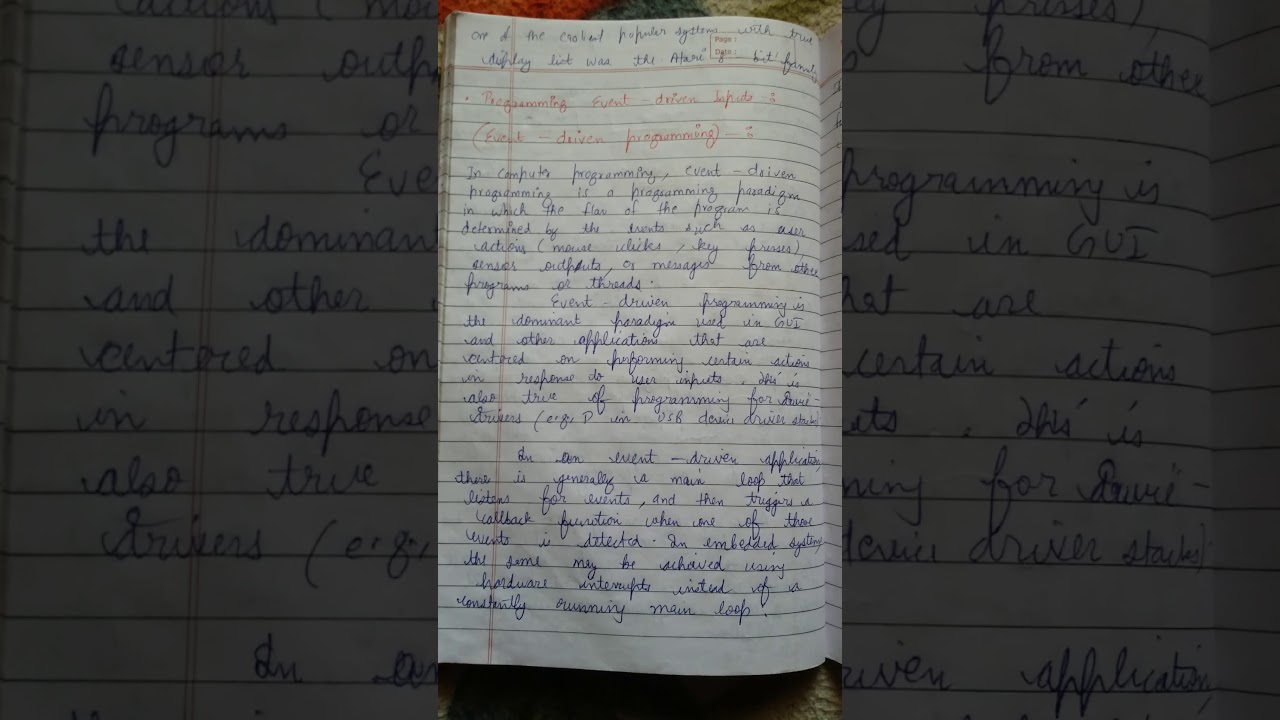 one of the earliest popular systems with true
Page:
Date:
display list was the Atari 8-bit family
• Programming Event-driven Inputs -:
(Event-driven programming) -:
In computer programming, event-driven
programming is a programming paradigm
in which the flow of the program is
determined by the events such as user
actions (mouse clicks, key presses),
sensor outputs, or messages from other
programs or threads.
Event-driven programming is
the dominant paradigm used in GUI
and other applications that are
centered on performing certain actions
in response to user inputs. This is
also true of programming for
drivers (e.g. P in USB device driver stacks)
In an event-driven application,
there is generally a main loop that
listens for events, and then triggers a
callback function when one of those
events is detected. In embedded systems
the same may be achieved using
hardware interrupts instead of a
constantly running main loop.